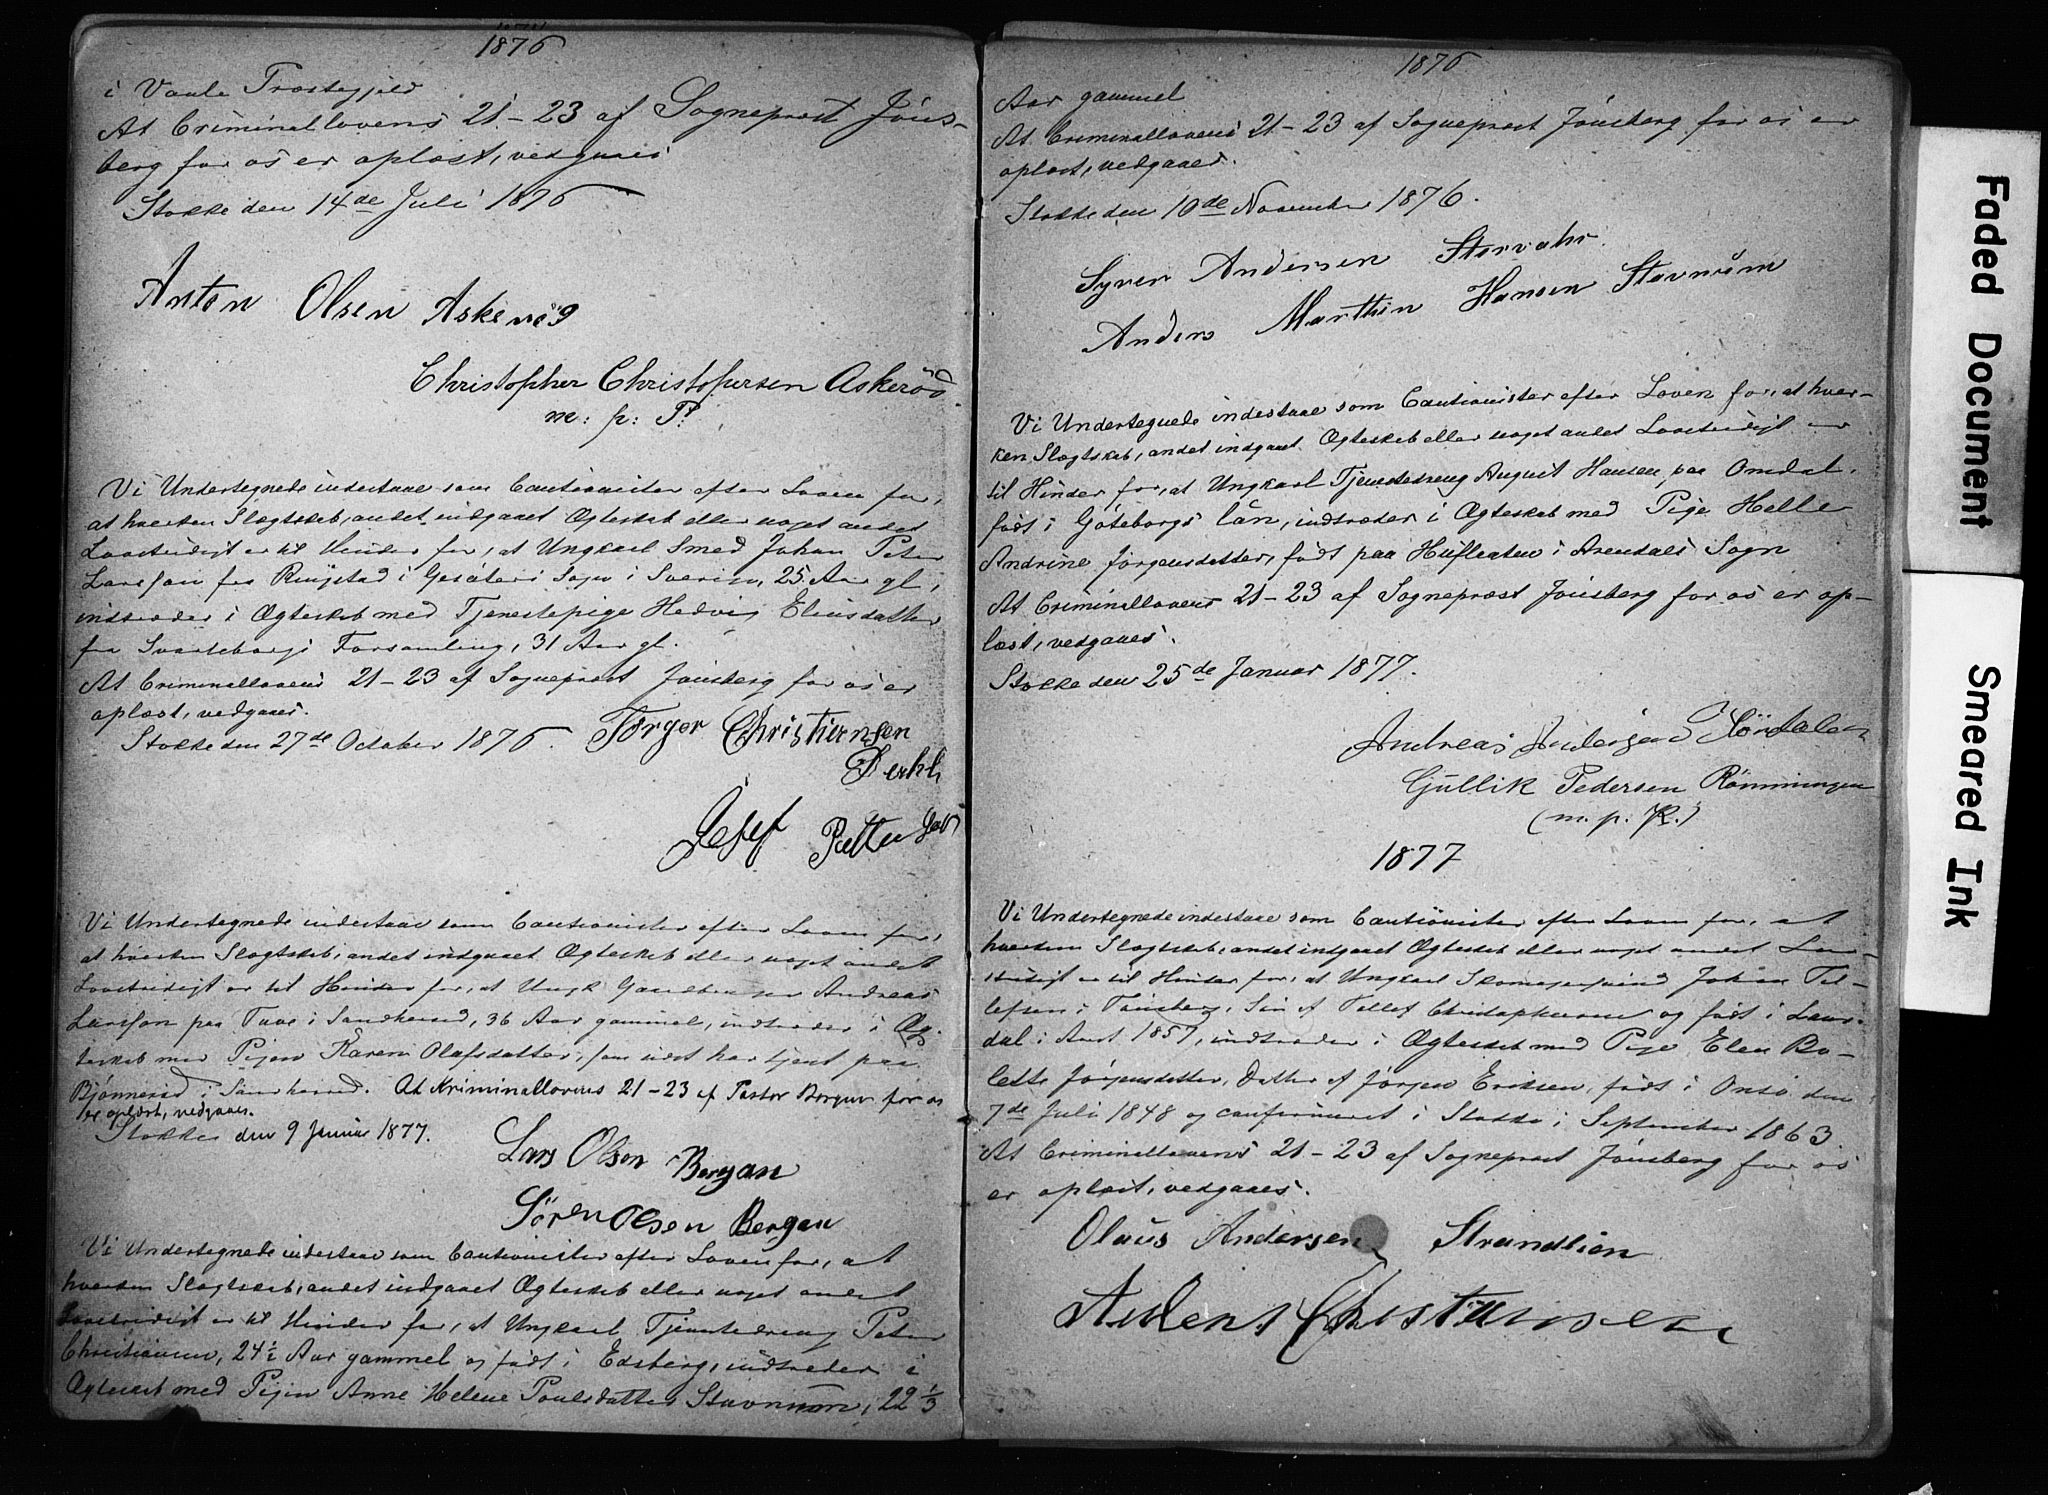 1876
i Vaale Præstegjeld
At Criminallovens 21-23 af Sogneprest Jöns-
berg for os er oplæst, vedgaaes
Stokke den 14de Juli 1876
Anton Olsen Askeröd
Christopher Christophersen Askeröd
m: p: P:
Vi Undertegnede indestaae som Cautionister efter Loven for,
at hverken Slægtskab, andet indgaaet Ægteskab eller noget andet
Lovstridigt er til Hinder for, at Ungkarl Smed Johan Peter
Larsson fra Ringstad i Sogn i Sverige, 25 Aar gl,
indtræder i Ægteskab med Tjenestepige Hedvig Eliasdatter
fra Svarteborgs Forsamling, 31 Aar gl.
At Criminallovens 21-23 af Sogneprest Jönsberg for os er
oplæst, vedgaaes.
Stokke den 27de October 1876. Torger Christiensen
Josef Petter
Vi Undertegnede indestaae som Cautionister efter Loven for,
at hverken Slægtskab, andet indgaaet Ægteskab eller noget andet
Lovstridigt er til Hinder for, at Ungk Andreas
Larsson paa Tuve i Sandherred, 36 Aar gammel, indtræder i Æg-
teskab med Pigen Karen Olafsdatter, som sidst har tjent paa
Bjönneröd i Sandherred. At Kriminallovens 21-23 af Pastor for os
er oplæst, vedgaaes.
Stokke den 9 Januar 1877.
Lars Olsen Bergan
Sören Olsen Bergan
Vi Undertegnede indestaae som Cautionister efter Loven for, at
hverken Slægtskab, andet indgaaet Ægteskab eller noget andet
Lovstridigt er til Hinder for, at Ungkarl Tjenestedreng Peter
Christiansen, 24½ Aar gammel og födt i Edsberg, indtræder i
Ægteskab med Pigen Anne Helene Poulsdatter Stavnum, 22 1/3
1876
Aar gammel
At Criminallovens 21-23 af Sogneprest Jönsberg for os er
oplæst, vedgaaes.
Stokke den 10de November 1876.
Syver Andersen
Anders Marthin Hansen Stavnum
Vi Undertegnede indestaae som Cautionister efter Loven for, at hver-
ken Slægtskab, andet indgaaet Ægteskab eller noget andet Lovstridigt er
til Hinder for, at Ungkarl Tjenestedreng August Hansen paa Omdal,
födt i Göteborgs län, indtræder i Ægteskab med Pige Helle
Andrine Jörgensdatter, födt paa i Arendals Sogn
At Criminallovens 21-23 af Sogneprest Jönsberg for os er op-
læst, vedgaaes.
Stokke den 25de Januar 1877.
Andreas Andersen
Gullik Pedersen Rönningen
(m. p. P.)
1877
Vi Undertegnede indestaae som Cautionister efter Loven for, at
hverken Slægtskab, andet indgaaet Ægteskab eller noget andet Lov-
stridigt er til Hinder for, at Ungkarl Skomagersvend Johan Tel-
lefsen i Tönsberg, Sön af Tellef Christophersen og födt i Laur-
dal i Aaret 1857, indtræder i Ægteskab med Pige Elen Bo-
lette Jörgensdatter, Datter af Jörgen Eriksen, födt i Onsö den
7de Juli 1848 og confirmeret i Stokke i September 1863.
At Criminallovens 21-23 af Sogneprest Jönsberg for os
er oplæst, vedgaaes.
Olaus Andersen Strandlien
Anders Christiansen
Faded Document
Smeared Ink